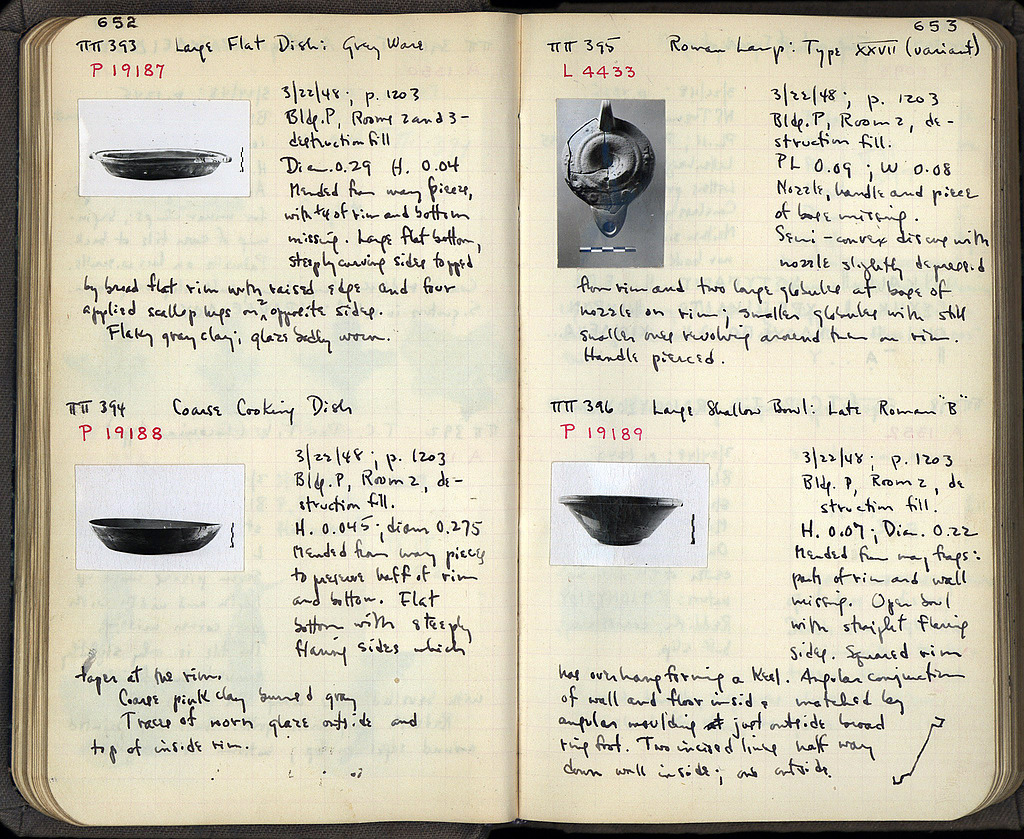 652
ΠΠ 393 Large Flat Dish: Gray Ware
P 19187
3/22/48; p. 1203
Bldg. P, Rooms 2 and 3 –
destruction fill
Diam. 0.29 H. 0.04
Mended from many pieces,
with ¼ of rim and bottom
missing. Large flat bottom,
steeply curving sides topped
by broad flat rim with raised edge and four
applied scallop lugs on 2 opposite sides.
Flaky gray clay; glaze badly worn.
ΠΠ 394 Coarse Cooking Dish
P 19188
3/22/48; p. 1203
Bldg. P, Room 2, de-
struction fill.
H. 0.045; diam 0.275
Mended from many pieces
to preserve half of rim
and bottom. Flat
bottom with steeply
flaring sides which
taper at the rim.
Coarse pink clay burned gray
Traces of worn glaze outside and
top of inside rim.
653
ΠΠ 395 Roman Lamp: Type XXVII (variant)
L 4433
3/22/48; p. 1203
Bldg. P, Room 2, de-
struction fill.
PL 0.09; W 0.08
Nozzle, handle and piece
of base missing.
Semi-convex discus with
nozzle slightly depressed
from rim and two large globules at base of
nozzle on rim; smaller globules with still
smaller ones revolving around them on rim.
Handle pierced.
ΠΠ 396 Large Shallow Bowl: Late Roman "B"
P 19189
3/22/48; p. 1203
Bldg. P, Room 2, de
struction fill.
H. 0.07; Dia. 0.22
Mended from many frags:
parts of rim and wall
missing. Open bowl
with straight flaring
sides. Squared rim
has overhang forming a keel. Angular conjunction
of wall and floor inside matched by
angular moulding just outside broad
ring foot. Two incised lines half way
down wall inside; one outside.